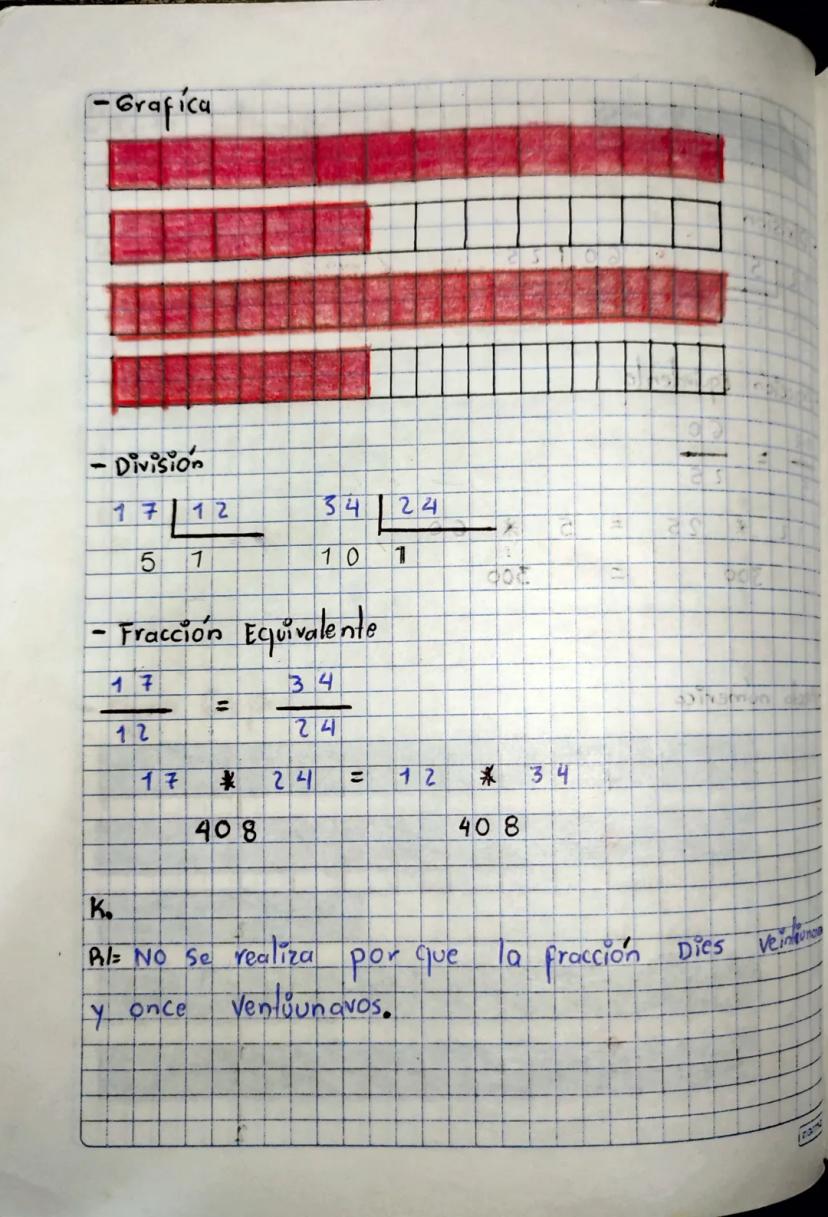 - Grafíca
- División
1 7 1 2 3 4 2 4
5 1 1 0 1
- Fracción Equivalente
1 7 = 3 4
1 2 2 4
1 7 * 2 4 = 1 2 * 3 4
4 0 8 4 0 8
K.
R/= No se realiza por que la fracción Dies
y once ventiunavos.